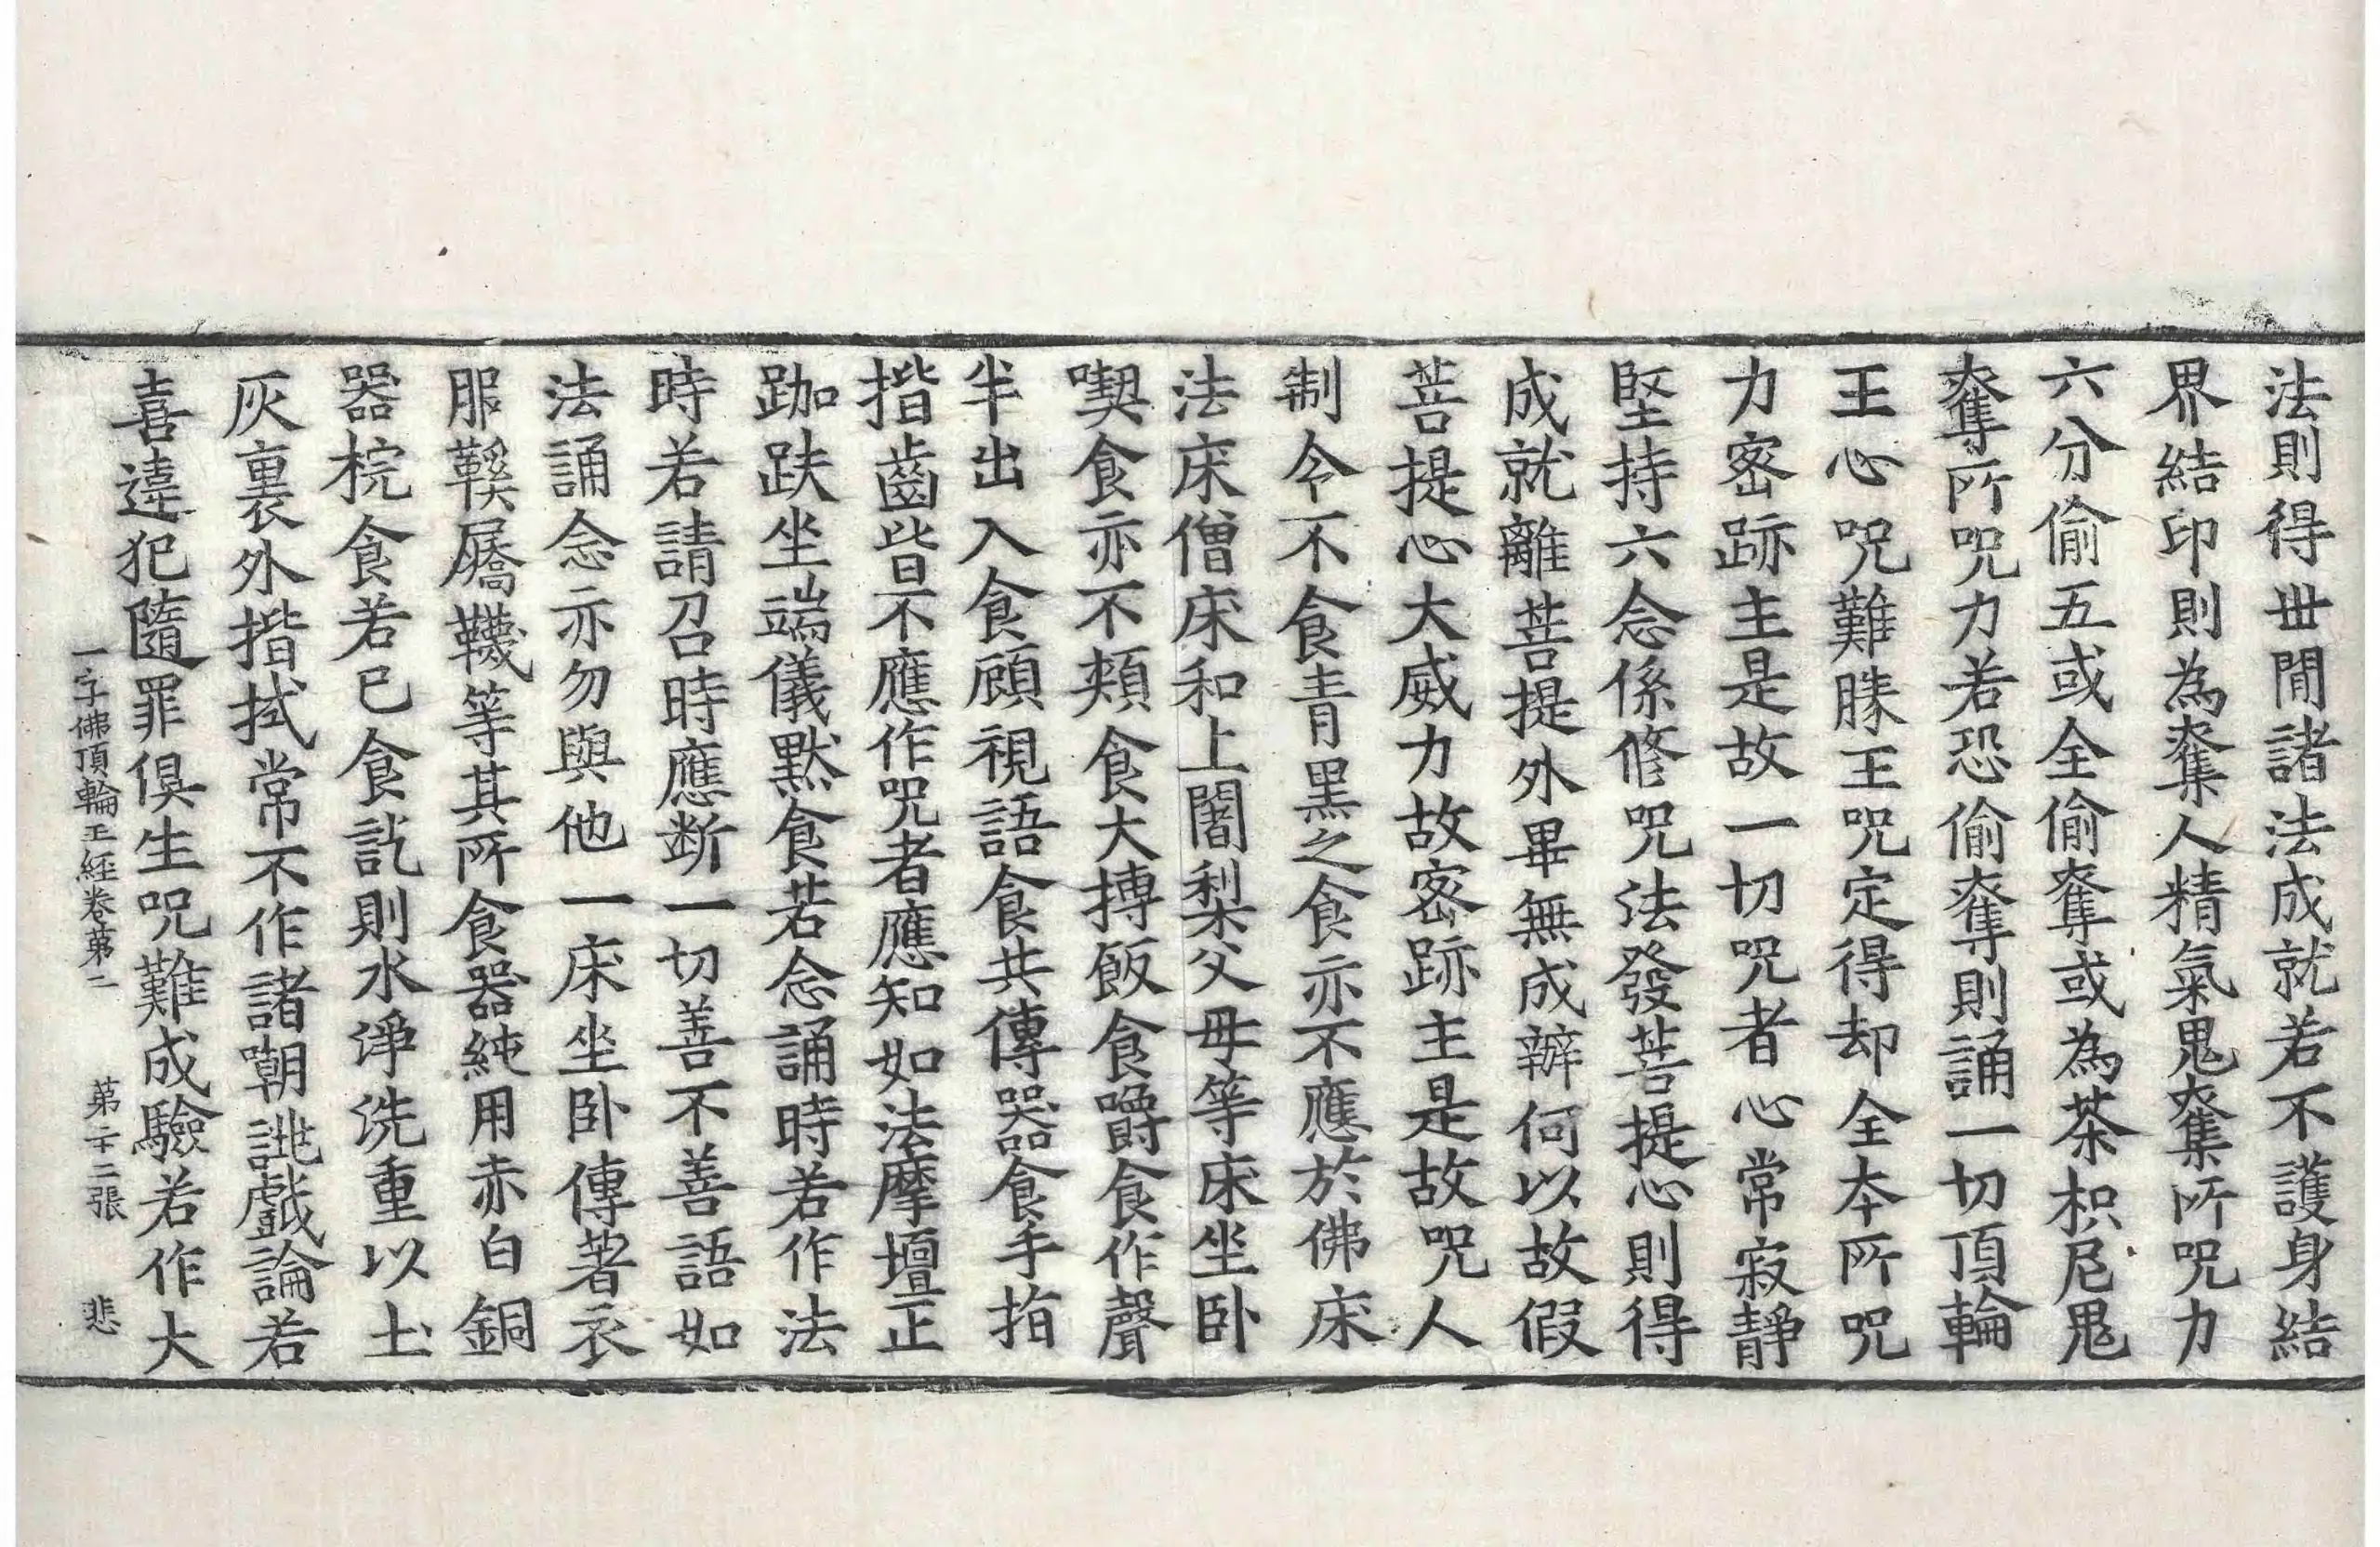 法則得世閒諸法成就若不護身結
界結印則為奪人精氣鬼奪所咒力
六分偷五或全偷奪或為茶枳尼鬼
奪所咒力若恐偷奪則誦一切頂輪
王心咒難勝王咒定得却全本所咒
力密跡主是故一切咒者心常寂靜
堅持六念係修咒法發菩提心則得
成就離菩提外畢無成辦何以故假
菩提心大威力故密跡主是故咒人
制令不食青黑之食亦不應於佛床
法床僧床和上闍梨父母等床坐卧
喫食亦不頰食大摶飯食嚼食作聲
半出入食顧視語食共傳器食手指
揩齒皆不應作咒者應知如法摩壇正
跏趺坐端儀默食若念誦時若作法
時若請召時應斷一切善不善語如
法誦念亦勿與他一床坐卧傳著衣
服鞵屩韈等其所食器純用赤白銅
器椀食若已食訖則水淨洗重以土
灰裏外揩拭常不作諸嘲誂戲論若
喜違犯隨罪俱生咒難成驗若作大
一字佛頂輪王經卷第二 第二十二張 悲